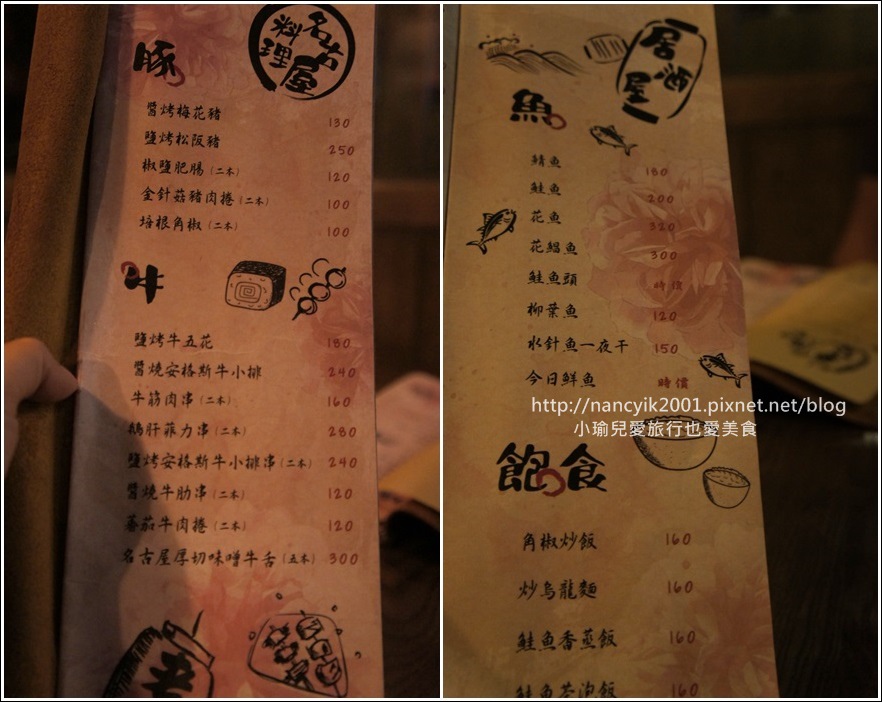 名古屋
料理
豚
醬烤梅花豬 130
鹽烤松阪豬 250
椒鹽肥腸(二本) 120
金針菇豬肉捲(二本) 100
培根角椒(二本) 100
牛
鹽烤牛五花 180
醬燒安格斯牛小排 240
牛筋肉串(二本) 160
鵝肝菲力串(二本) 280
鹽烤安格斯牛小排串(二本) 240
醬燒牛肋串(二本) 120
蕃茄牛肉捲(二本) 120
名古屋厚切味噌牛舌(五本) 300
居酒屋
魚
鯖魚 180
鮭魚 200
花魚 320
花鯧魚 300
鮭魚頭 時價
柳葉魚 120
水針魚一夜干 150
今日鮮魚 時價
http://nancyik2001.pixnet.net/blog
小瑜兒愛旅行也愛美食
飽食
角椒炒飯 160
炒烏龍麵 160
鮭魚香蒸飯 160
鮭魚茶泡飯 160